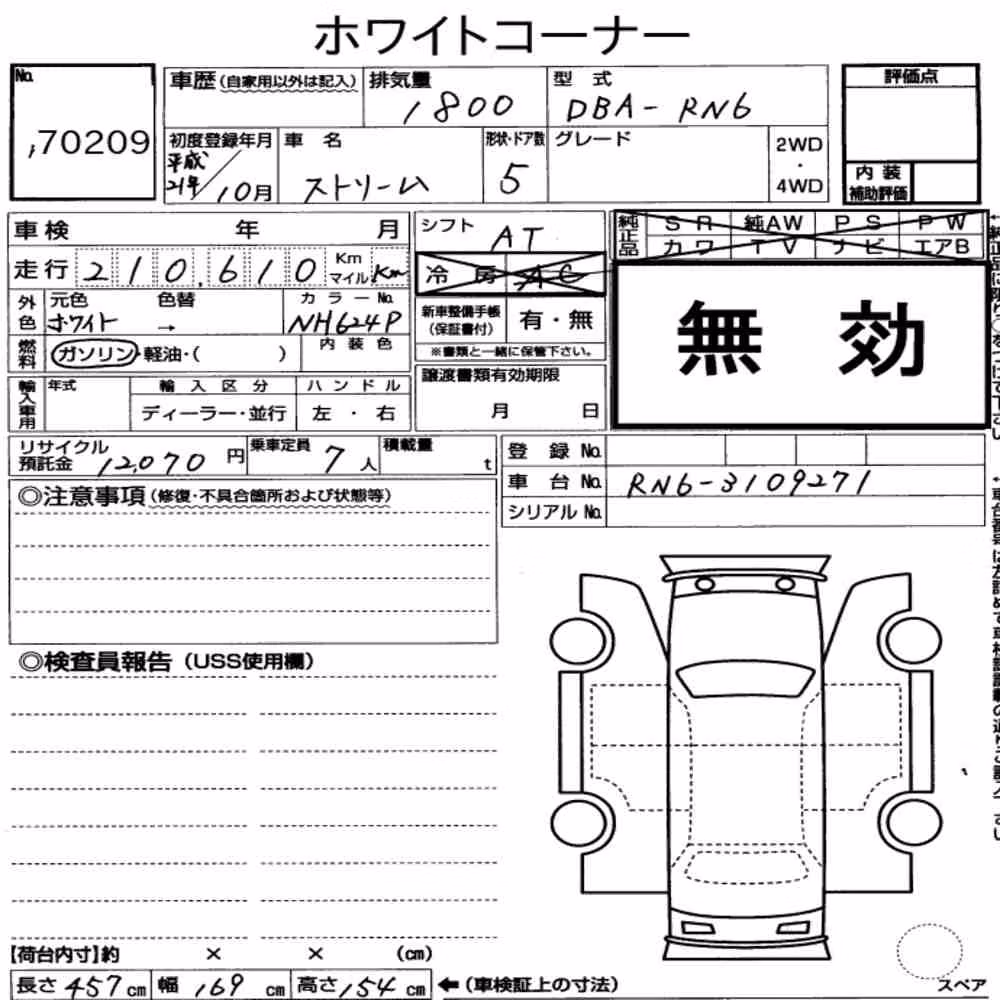 ホワイトコーナー
No. 70209
車歴(自家用以外は記入) 排気量 1800 型式 DBA-RN6
初度登録年月 平成21年/10月 車名 ストリーム 形状・ドア数 5 グレード 2WD・4WD
評価点
内装補助評価
車検 年 月
走行 210,610 Km マイル Km
外色 元色 ホワイト 色替 → カラーNo. NH624P
燃料 ガソリン・軽油・( ) 内装色
輸入車用 年式 輸入区分 ディーラー・並行 ハンドル 左・右
シフト AT
冷房 AC
新車整備手帳(保証書付) 有・無
※書類と一緒に保管下さい。
譲渡書類有効期限
月 日
純正品 SR 純AW PS PW
カワ TV ナビ エアB
無効
リサイクル預託金 12,070円 乗車定員 7人 積載量 t
登録No.
車台No. RN6-3109271
シリアルNo.
◎注意事項(修復・不具合箇所および状態等)
◎検査員報告(USS使用欄)
【荷台内寸】約 × × (cm)
長さ 457cm 幅 169cm 高さ 154cm ←(車検証上の寸法)
スペア